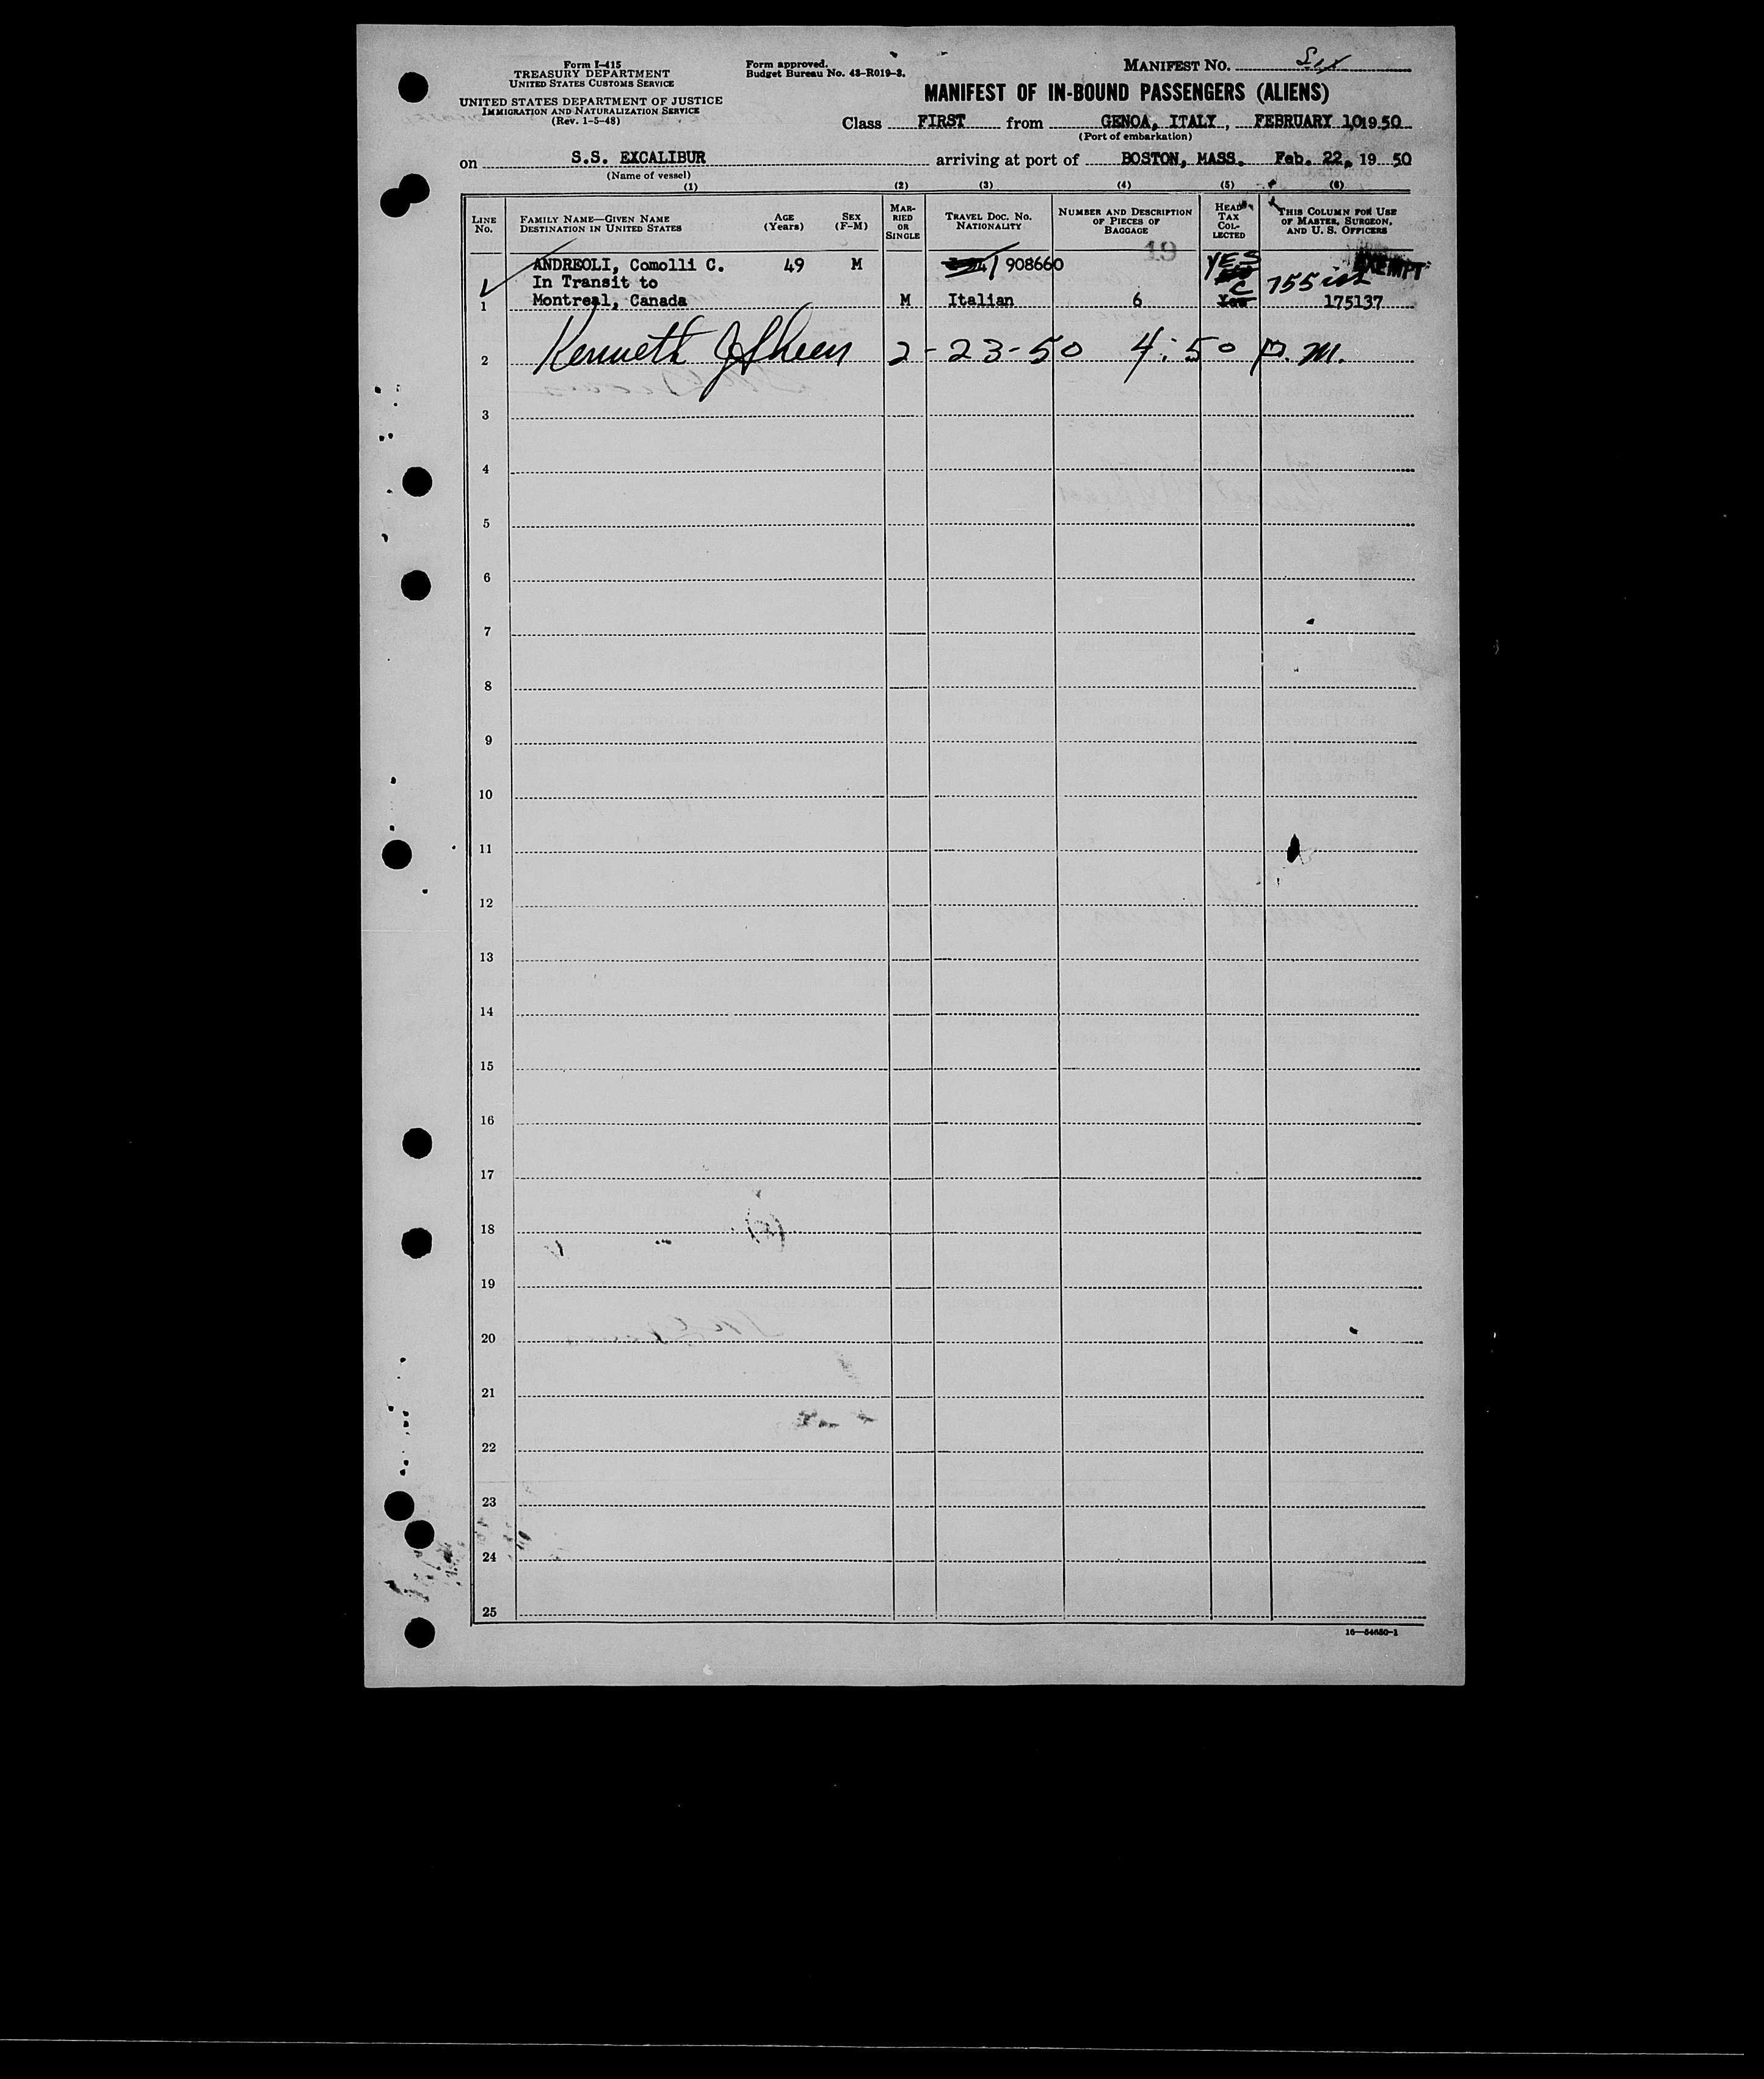 Form I-415
TREASURY DEPARTMENT
UNITED STATES CUSTOMS SERVICE
UNITED STATES DEPARTMENT OF JUSTICE
IMMIGRATION AND NATURALIZATION SERVICE
(Rev. 1-5-48)
Form approved.
Budget Bureau No. 43-R019-3.
MANIFEST NO. Six
MANIFEST OF IN-BOUND PASSENGERS (ALIENS)
Class FIRST from GENOA, ITALY, FEBRUARY 10 19 50
(Port of embarkation)
on S.S. EXCALIBUR arriving at port of BOSTON, MASS. Feb. 22, 19 50
(Name of vessel)
(1) (2) (3) (4) (5) (6)
LINE NO. FAMILY NAME—GIVEN NAME DESTINATION IN UNITED STATES AGE (Years) SEX (F-M) MARRIED OR SINGLE TRAVEL DOC. NO. NATIONALITY NUMBER AND DESCRIPTION OF PIECES OF BAGGAGE HEAD TAX COLLECTED THIS COLUMN FOR USE OF MASTER, SURGEON, AND U. S. OFFICERS
19
ANDREOLI, Comolli C. 49 M 908660 YES EXEMPT
In Transit to C
1 Montreal, Canada M Italian 6 Yes 175137
2 Kenneth J Sheen 2-23-50 4:50 p.m.
3
4
5
6
7
8
9
10
11
12
13
14
15
16
17
18
19
20
21
22
23
24
25
16—54650-1